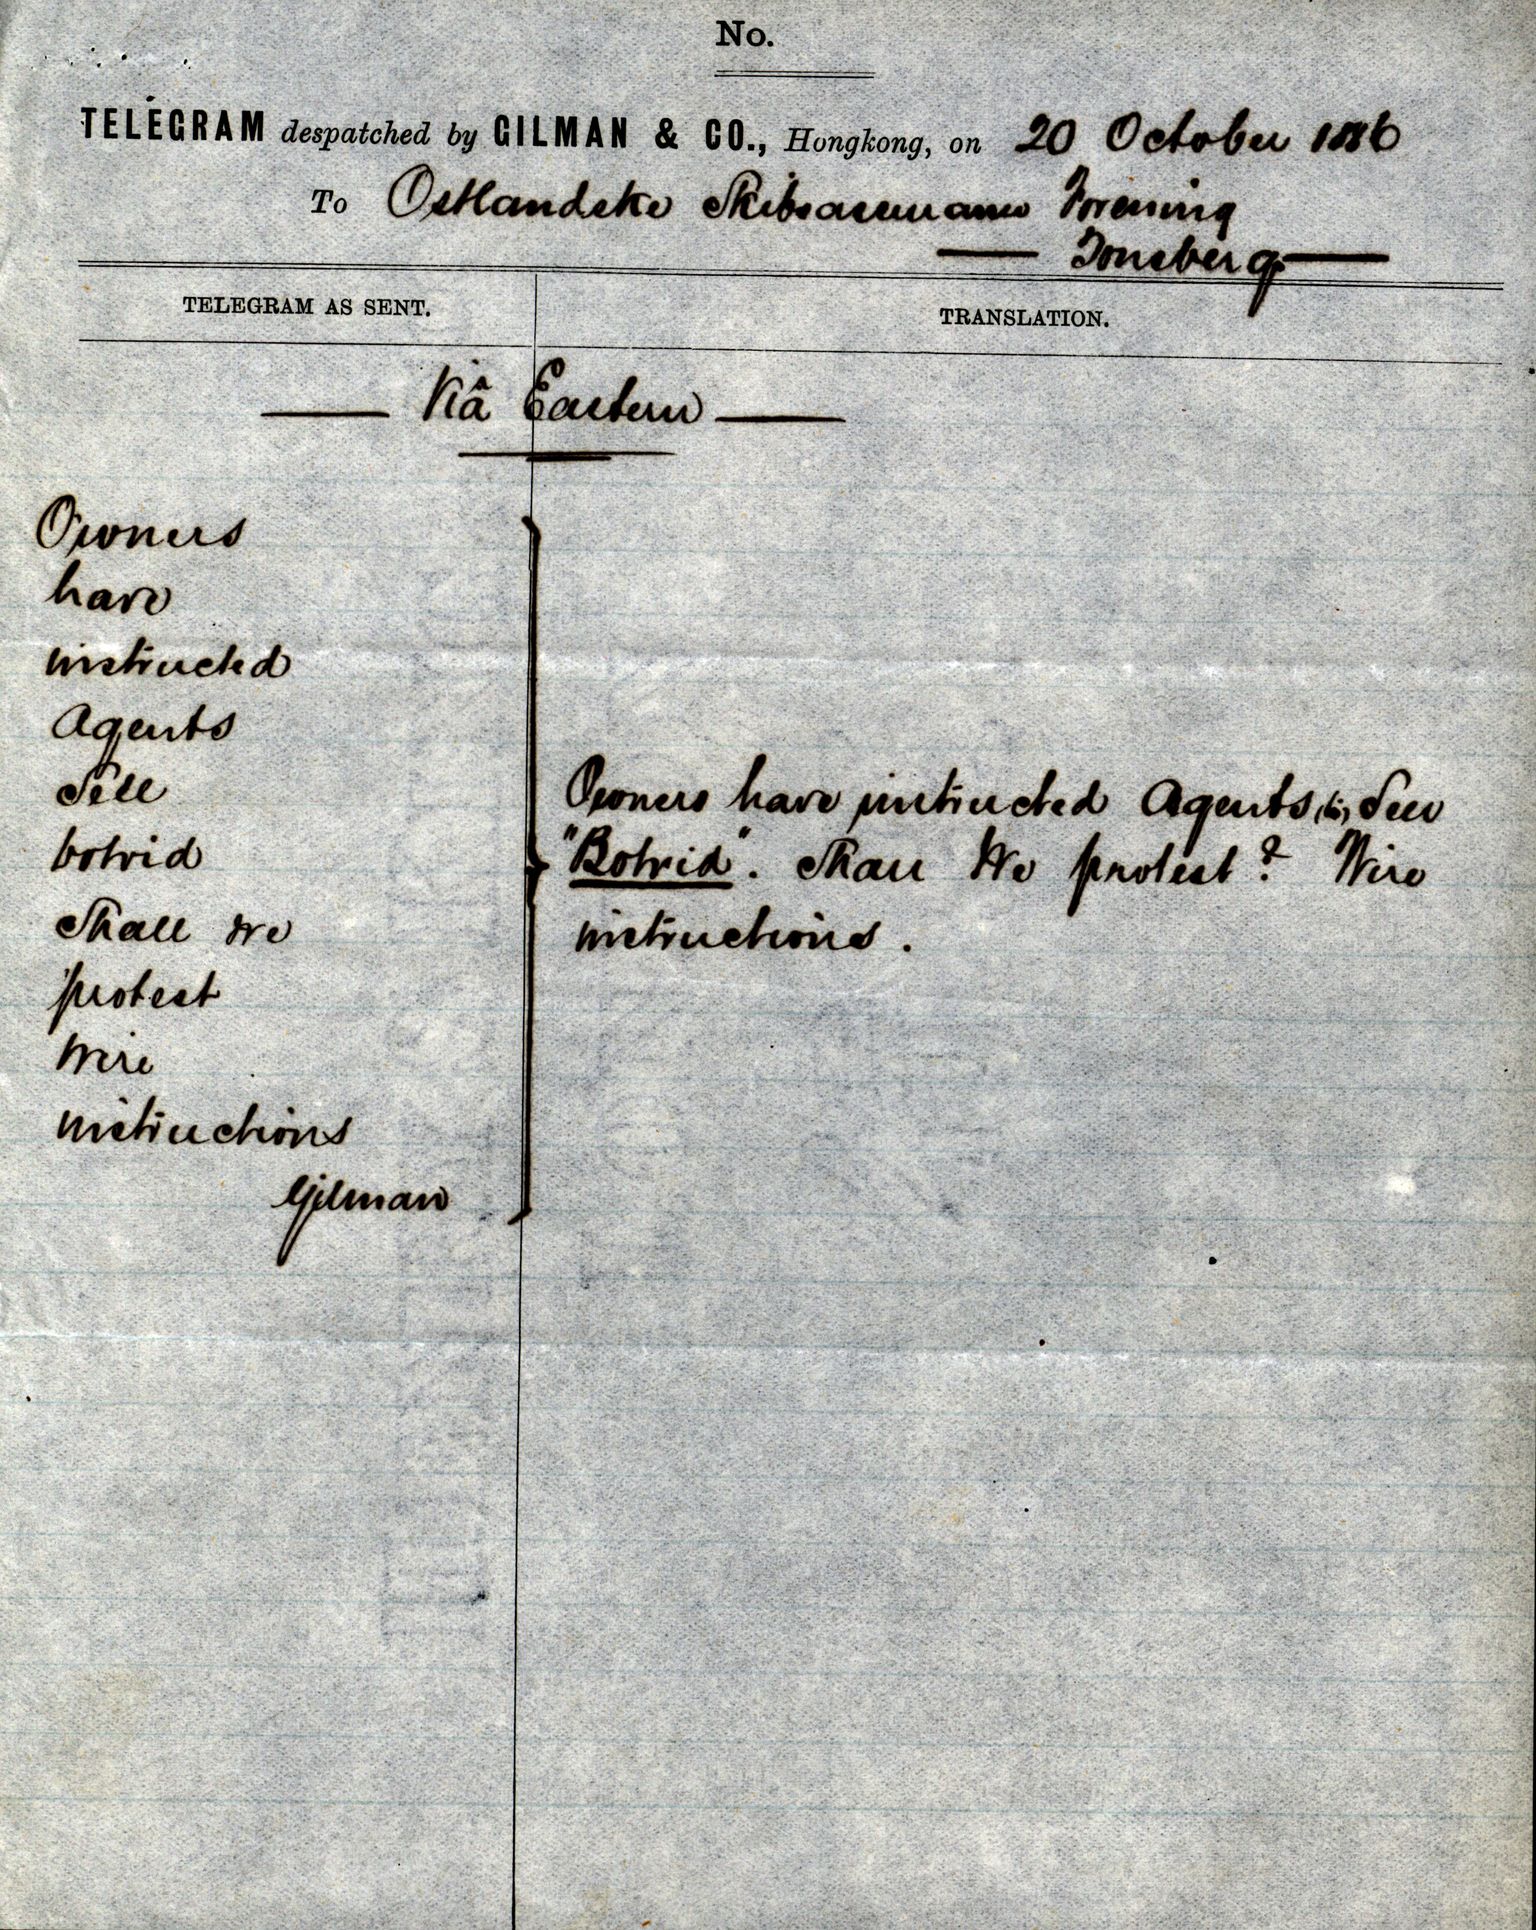 No.
TELEGRAM despatched by GILMAN & CO., Hongkong, on 20 October 1886
To Ostlandske Skibsassurance Forening
Tonsberg
TELEGRAM AS SENT.
TRANSLATION.
Viâ Eastern
Owners
have
instructed
Agents
Sell
botvid
Shall we
protest
Wire
instructions
Gilman
Owners have instructed Agents (to) Sell
"Botvid". Shall We protest? Wire
instructions.